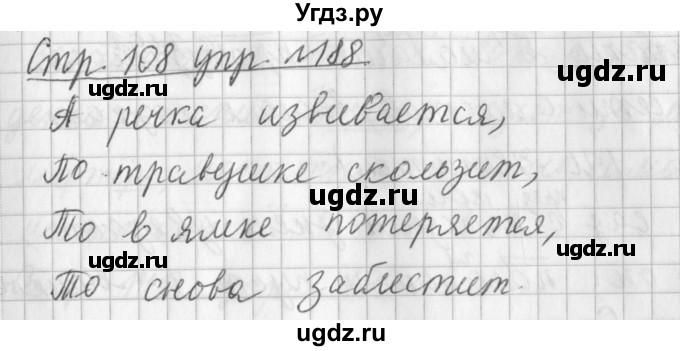 Угдз.ру
Стр. 108 упр. №188
ugdz.ru ugdz.ru
А речка извивается,
ugdz.ru
По травушке скользит,
ugdz.ru
ugdz.ru
То в ямке потеряется,
ugdz.ru ugdz.ru
То снова заблестит.
ugdz.ru